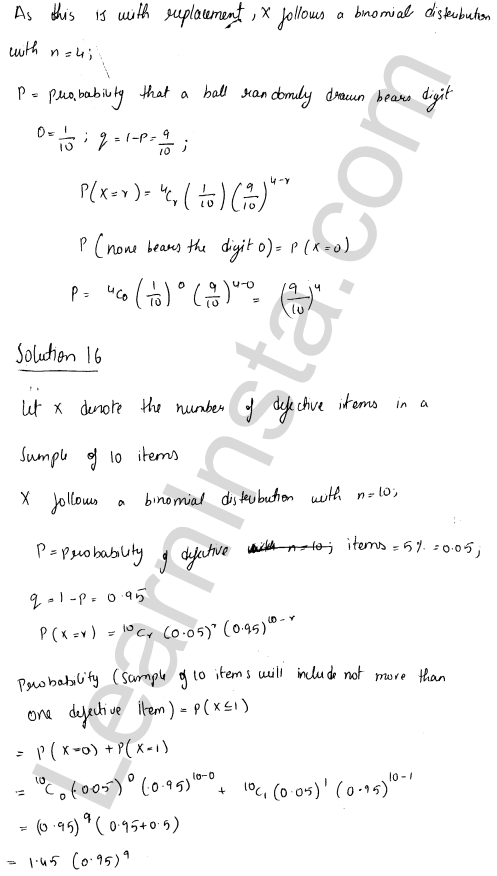 As this is with replacement, X follows a binomial distribution
with n = 4;
P = probability that a ball randomly drawn bears digit
0 = 1/10 ; q = 1-P = 9/10 ;
P(X=r) = ⁴Cᵣ (1/10) (9/10)^(4-r)
P (none bears the digit 0) = P (X=0)
P = ⁴C₀ (1/10)^0 (9/10)^(4-0) = (9/10)^4
Solution 16
Let X denote the number of defective items in a
Sample of 10 items
X follows a binomial distribution with n=10;
P = probability of defective with n=10; items = 5% = 0.05;
q = 1-P = 0.95
P(X=r) = ¹⁰Cᵣ (0.05)^r (0.95)^(10-r)
Probability (Sample of 10 items will include not more than
one defective item) = P(X≤1)
= P(X=0) + P(X=1)
= ¹⁰C₀ (.005)^0 (0.95)^(10-0) + ¹⁰C₁ (0.05)^1 (0.95)^(10-1)
= (0.95)^9 (0.95+0.5)
= 1.45 (0.95)^9
LearnInsta.com